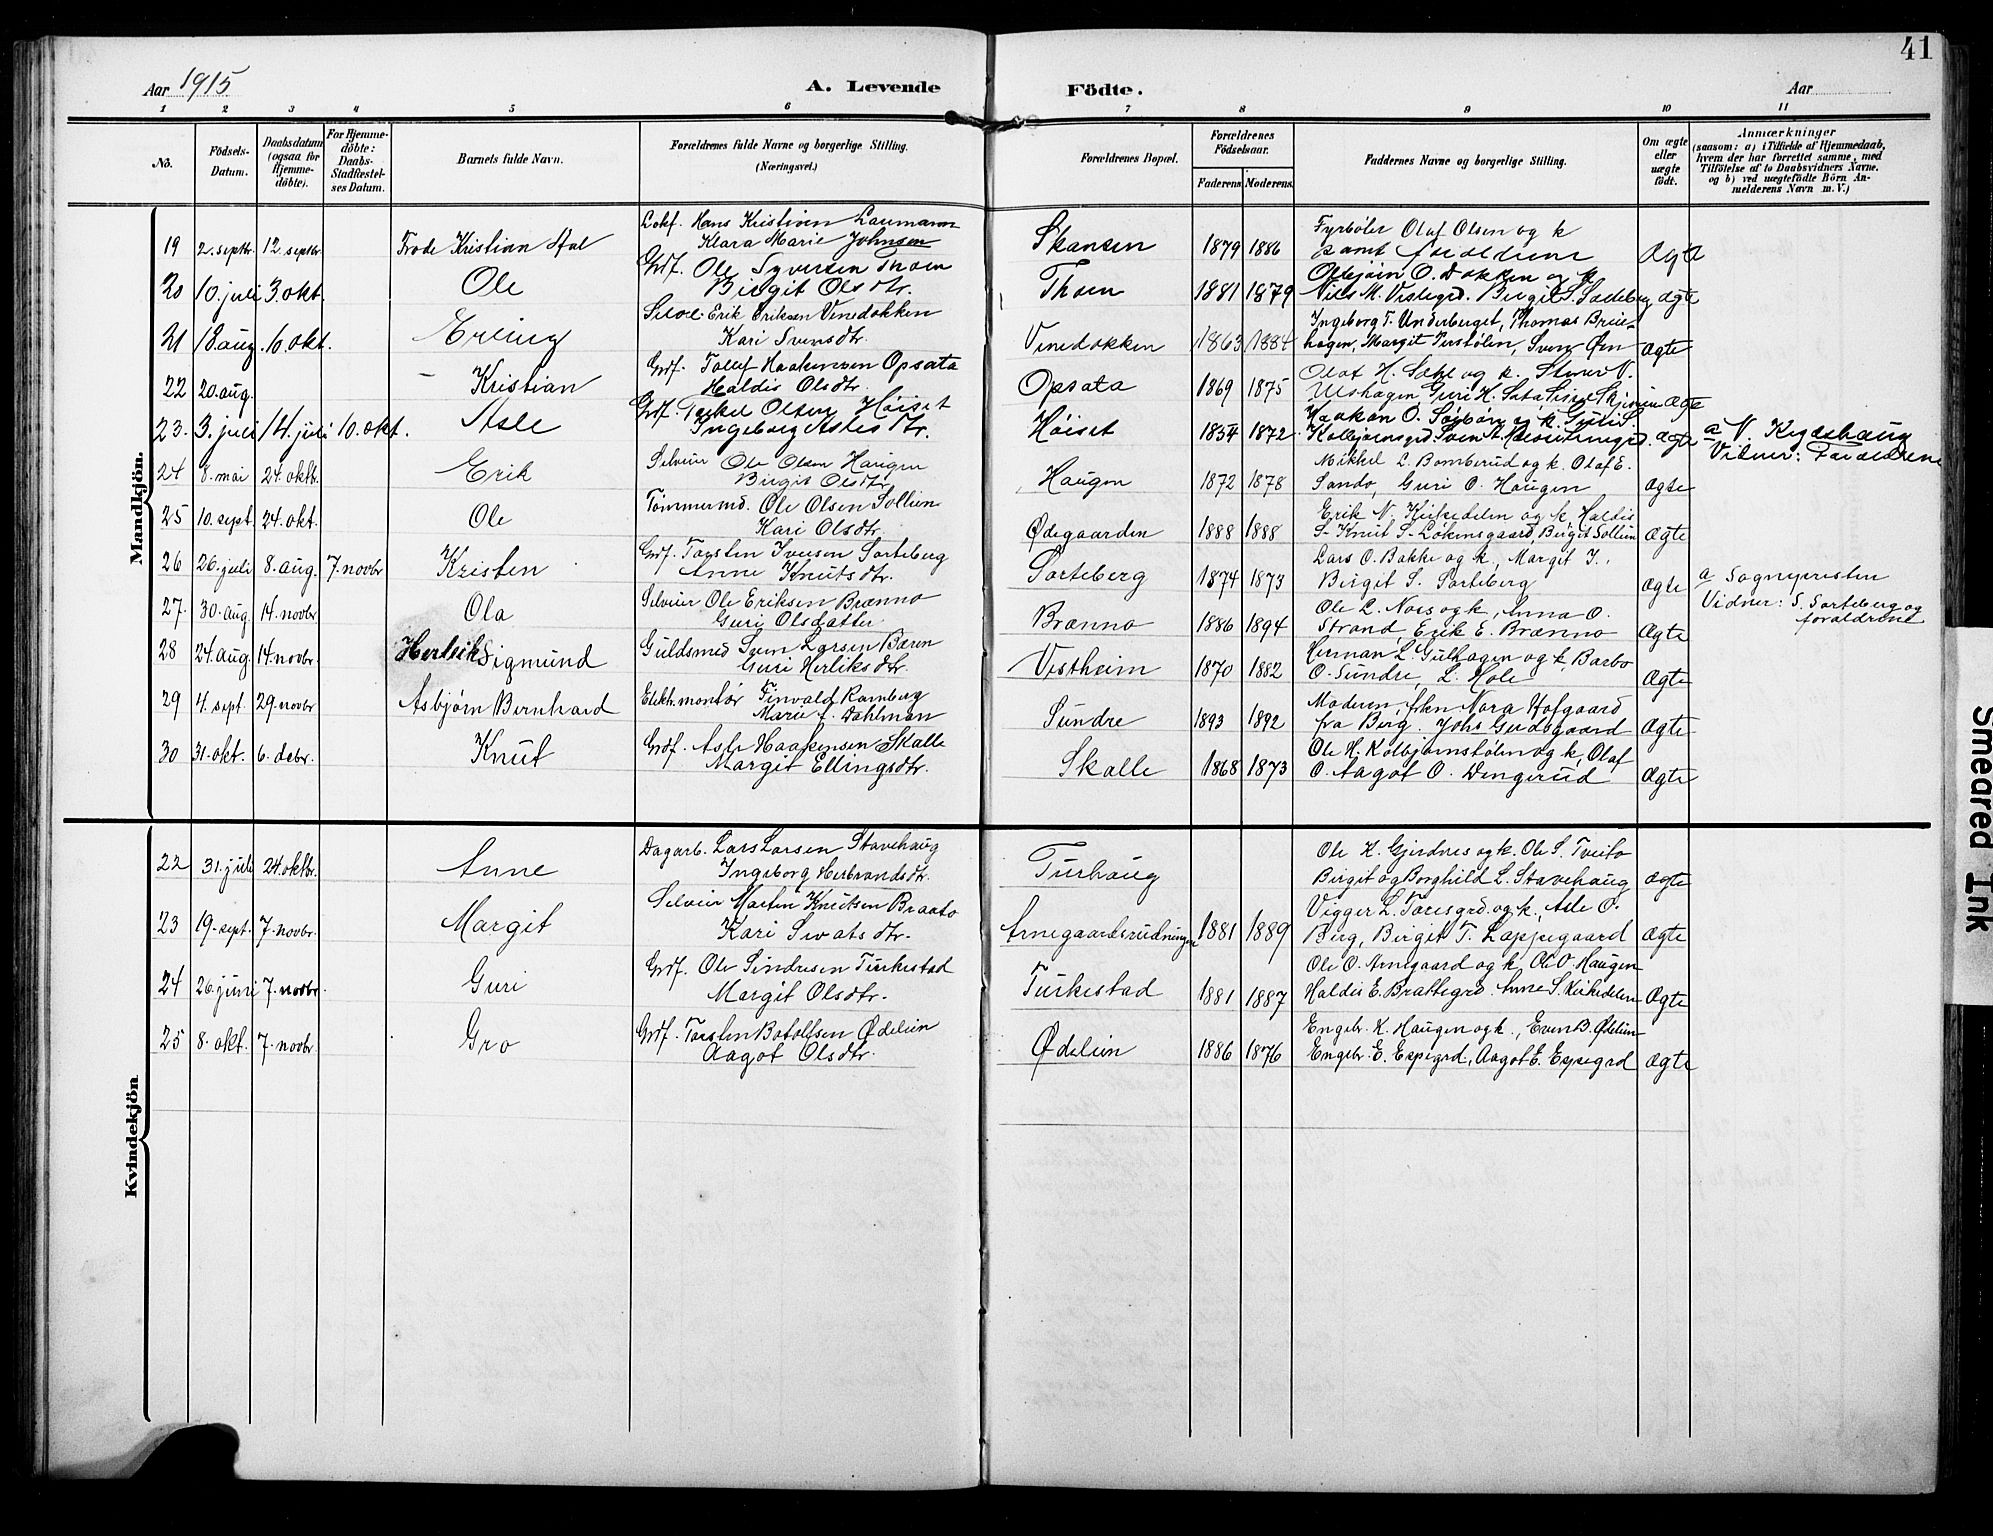 41
Aar 1915
A. Levende Födte.
Aar
1 2 3 4 5 6 7 8 9 10 11
No.
Födsels-Datum.
Daabsdatum (ogsaa for Hjemme-döbte).
For Hjemme-döbte: Daabs-Stadfæstel-ses Datum.
Barnets fulde Navn.
Forældrenes fulde Navne og borgerlige Stilling. (Næringsvei.)
Forældrenes Bopæl.
Forældrenes Födselsaar.
Faderens Moderens
Faddernes Navne og borgerlige Stilling.
Om ægte eller uægte födt.
Anmærkninger
(saasom: a) i Tilfælde af Hjemmedaab, hvem der har forrettet samme, med Tilföielse af to Daabsvidners Navne. og b) ved uægtefödte Börn An-melderens Navn m. V.)
Mandkjön.
19 2. septbr. 12. septbr. Frode Kristian
Hans Kristian Laumann
Klara Marie Johnsen
Skansen 1879 1886
Fyrbøter Olaf Olsen og k
samt forældrene
Ægte
20 10. juli 3. okt. Ole
Grdf. Ole Syversen Thoen
Birgit Olsdtr.
Thoen 1881 1879
Olbjørn O. Dokken og k
Birgit S. Sorteberg
Ægte
21 18. aug. 10. okt. Erling
Erik Eriksen Vinedokken
Kari Svensdtr.
Vinedokken 1863 1884
Ingeborg T. Underberget, Thomas
Margit Perstølen, Sven
Ægte
22 20. aug. - Kristian
Grdf. Tollef Haakensen Opsata
Haldis Olsdtr.
Opsata 1869 1875
Olaf H. og k.
Guri H.
Ægte
23. 3. juli 14. juli 10. okt. Asle
Grdf. Torkel Olsen Høiset
Ingeborg Aslesdtr.
Høiset 1854 1872
Haakon O. og k. Guri S.
Kolbjørnsgrd. Sven A.
Ægte
a N.
Vidner: Forældrene
24 8. mai 24. oktb. Erik
Selveier Ole Olsen Haugen
Birgit Olsdtr
Haugen 1872 1878
Mikkel L. Bomberud og k. Olaf E.
Sando, Guri O. Haugen
Ægte
25 10. sept. 24. okt. Ole
Tømmermd. Ole Olsen Sollien
Kari Olsdtr.
Ødegaarden 1888 1888
Erik N. Kirkedelen og k Haldis
S. Knut S. Løkensgaard, Birgit Sollien
Ægte
26 26. juli 8. aug. 7. novbr Kristen
Grdf. Torsten Iversen Sorteberg
Anne Knutsdtr.
Sorteberg 1874 1873
Lars O. Bakke og k, Margit I.,
Birgit S. Sorteberg
Ægte
a Sognepresten
Vidner: S. Sorteberg og
forældrene
27. 30. aug. 14. novbr Ola
Selveier Ole Eriksen Brænno
Guri Olsdatter
Brænno 1886 1894
Ole L. Nors og k, Anna O.
Strand, Erik E. Brænno
Ægte
28 24. aug. 14. novbr. Herleik Sigmund
Guldsmed Sven Larsen Bæren
Guri Herliksdtr.
Vestheim 1870 1882
Herman L. Gulhagen og k, Barbo
O. Sundre, L. Hole
Ægte
29 4. sept. 29. novbr Asbjørn Bernhard
Elektr. montør Finvald Ramberg
Marie f. Dahlman
Sundre 1893 1892
Moderen, frkn Nora Hofgaard
fra Berg. Johs Gudsgaard
Ægte
30 31. okt. 6. debr. Knut
Grdf. Asle Haakensen Skalle
Margit Ellingsdtr.
Skalle 1868 1873
Ole H. Kolbjørnstølen og k, Olaf
O. Aagot O. Dengerud
Ægte
Kvindekjön
22 31. juli 24. oktbr. Anne
Dagarb. Lars Larsen Stavehaug
Ingeborg Herbrandsdtr.
Turhaug
Ole K. Gjerdnes og k. Ole S. Tveito
Birgit og Borghild L. Stavehaug
Ægte
23 19. sept. 7. novbr. Margit
Selveier Martin Knutsen Braato
Kari Sivatsdtr.
Arnegaardsrudningen 1881 1889
Vigger L. Toresgrd. og k, Asle O.
Berg, Birgit T. Loppegaard
Ægte
24 26. juni 7. novbr. Guri
Grdf. Ole Sindresen Turkestad
Margit Olsdtr.
Turkestad 1881 1887
Ole O. Arnegaard og k, Ole O. Haugen
Haldis E. Brattegrd. Anne S. Kirkedelen
Ægte
25 8. okt. 7. novbr. Gro
Grdf. Torsten Botolfsen Ødelien
Aagot Olsdtr.
Ødelien 1886 1876
Engebr. K. Haugen og k., Even B. Ødelien
Engebr. E. Espegrd, Aagot E. Espegrd
Ægte
Smeared Ink